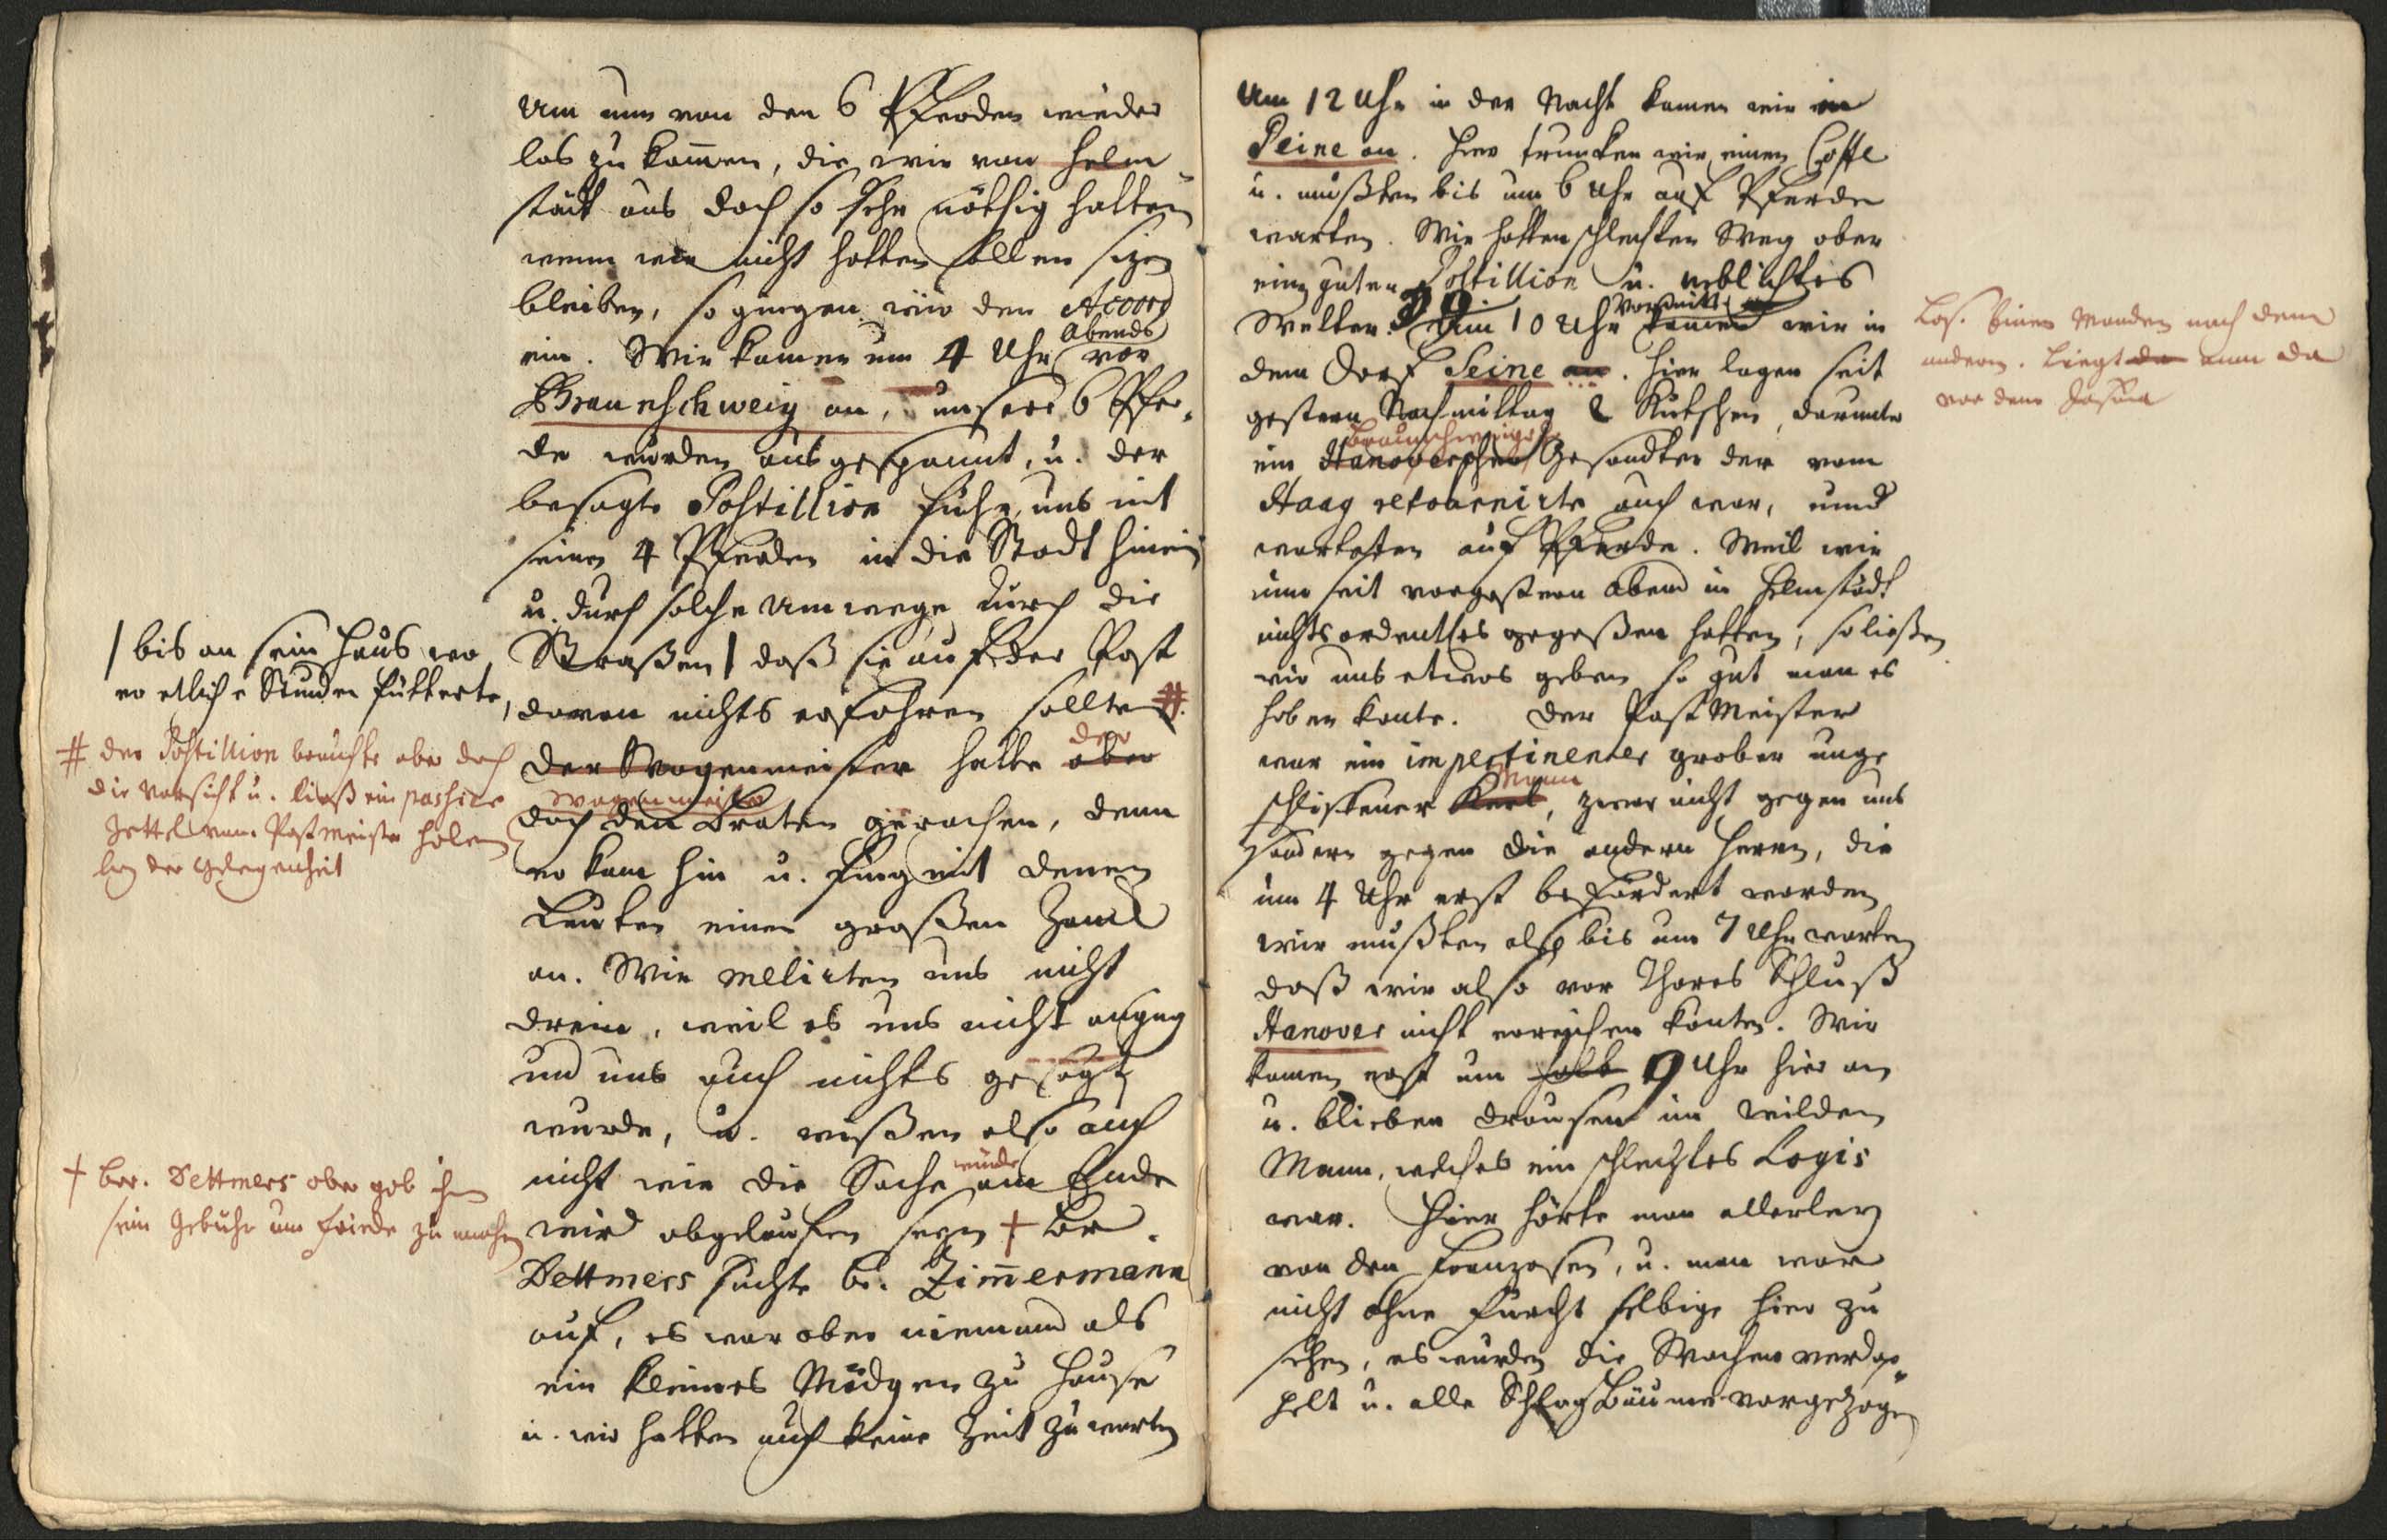 Um nun von den 6 Pferden wieder
los zu kommen, die wir von Helm-
städt aus doch so sehr nöthig hatten
wenn wir nicht hätten sollen sizen
bleiben, so giengen wir den Accord
ein. Wir kamen um 4 Uhr Abends vor
Braunschweig an, unsere 6 Pfer-
de wurden ausgespannt, u. der
besagte Postillion fuhr uns mit
seinen 4 Pferden in die Stadt hinein
u. durch solche Umwege durch die
Straßen | daß sie auf der Post
davon nichts erfahren sollten #.
Der Wagenmeister hatte aber der
Wagenmeister
doch den Braten gerochen, denn
er kam hin u. fing mit denen
Leuten einen großen Zank
an. Wir melirten uns nicht
drein, weil es uns nicht anging
und uns auch nichts gesagt
wurde, u. wißen also auch
nicht wie die Sache würde am Ende
wird abgelaufen seyn + Br.
Dettmers suchte Br. Zim̄ermann
auf, es war aber niemand als
ein kleines Mädgen zu Hause
u. wir hatten auch keine Zeit zu warten
| bis an sein Haus wo
er etliche Stunden fütterte,
# der Postillion brauchte aber doch
die Vorsicht u. ließ ein passir
Zettel vom Postmeister holen
bey der Gelegenheit
+ Br. Dettmers aber gab ihm
sein Gebühr um Friede zu machen
Um 12 Uhr in der Nacht kamen wir in
Peine an. Hier truncken wir einen Coffe
u. mußten bis um 6 Uhr auf Pferde
warten. Wir hatten schlechten Weg aber
einen guten Postillion u. neblichtes
Wetter. Um 10 Uhr Vormitt. kamen wir in
dem Dorf Seine an. Hier lagen seit
gestern Nachmittag 2 Kutschen, darunter
ein Hanoverscher Braunschweiger Gesandter der vom
Haag retournirte auch war, und
warteten auf Pferde. Weil wir
nun seit vorgestern Abend in Helmstädt
nichts ordentles gegeßen hatten, so ließen
wir uns etwas geben so gut man es
haben konte. Der Post Meister
war ein impertinenter grober unge
schliffener Kerl Mann, zwar nicht gegen uns
sondern gegen die andern Herrn, die
um 4 Uhr erst befördert worden
wir mußten also bis um 7 Uhr warten
daß wir also vor Thores Schluß
Hanover nicht erreichen konten. Wir
kamen erst um halb 9 Uhr hier an
u. blieben drausen im wilden
Mann, welches ein schlechtes Logis
war. Hier hörte man allerley
von den Franzosen, u. man war
nicht ohne Furcht selbige hier zu
sehen, es wurden die Wachen verdop-
pelt u. alle Schlagbäume vorgezogen
Einen nach dem
andern. Liegt da nun da
vor dem